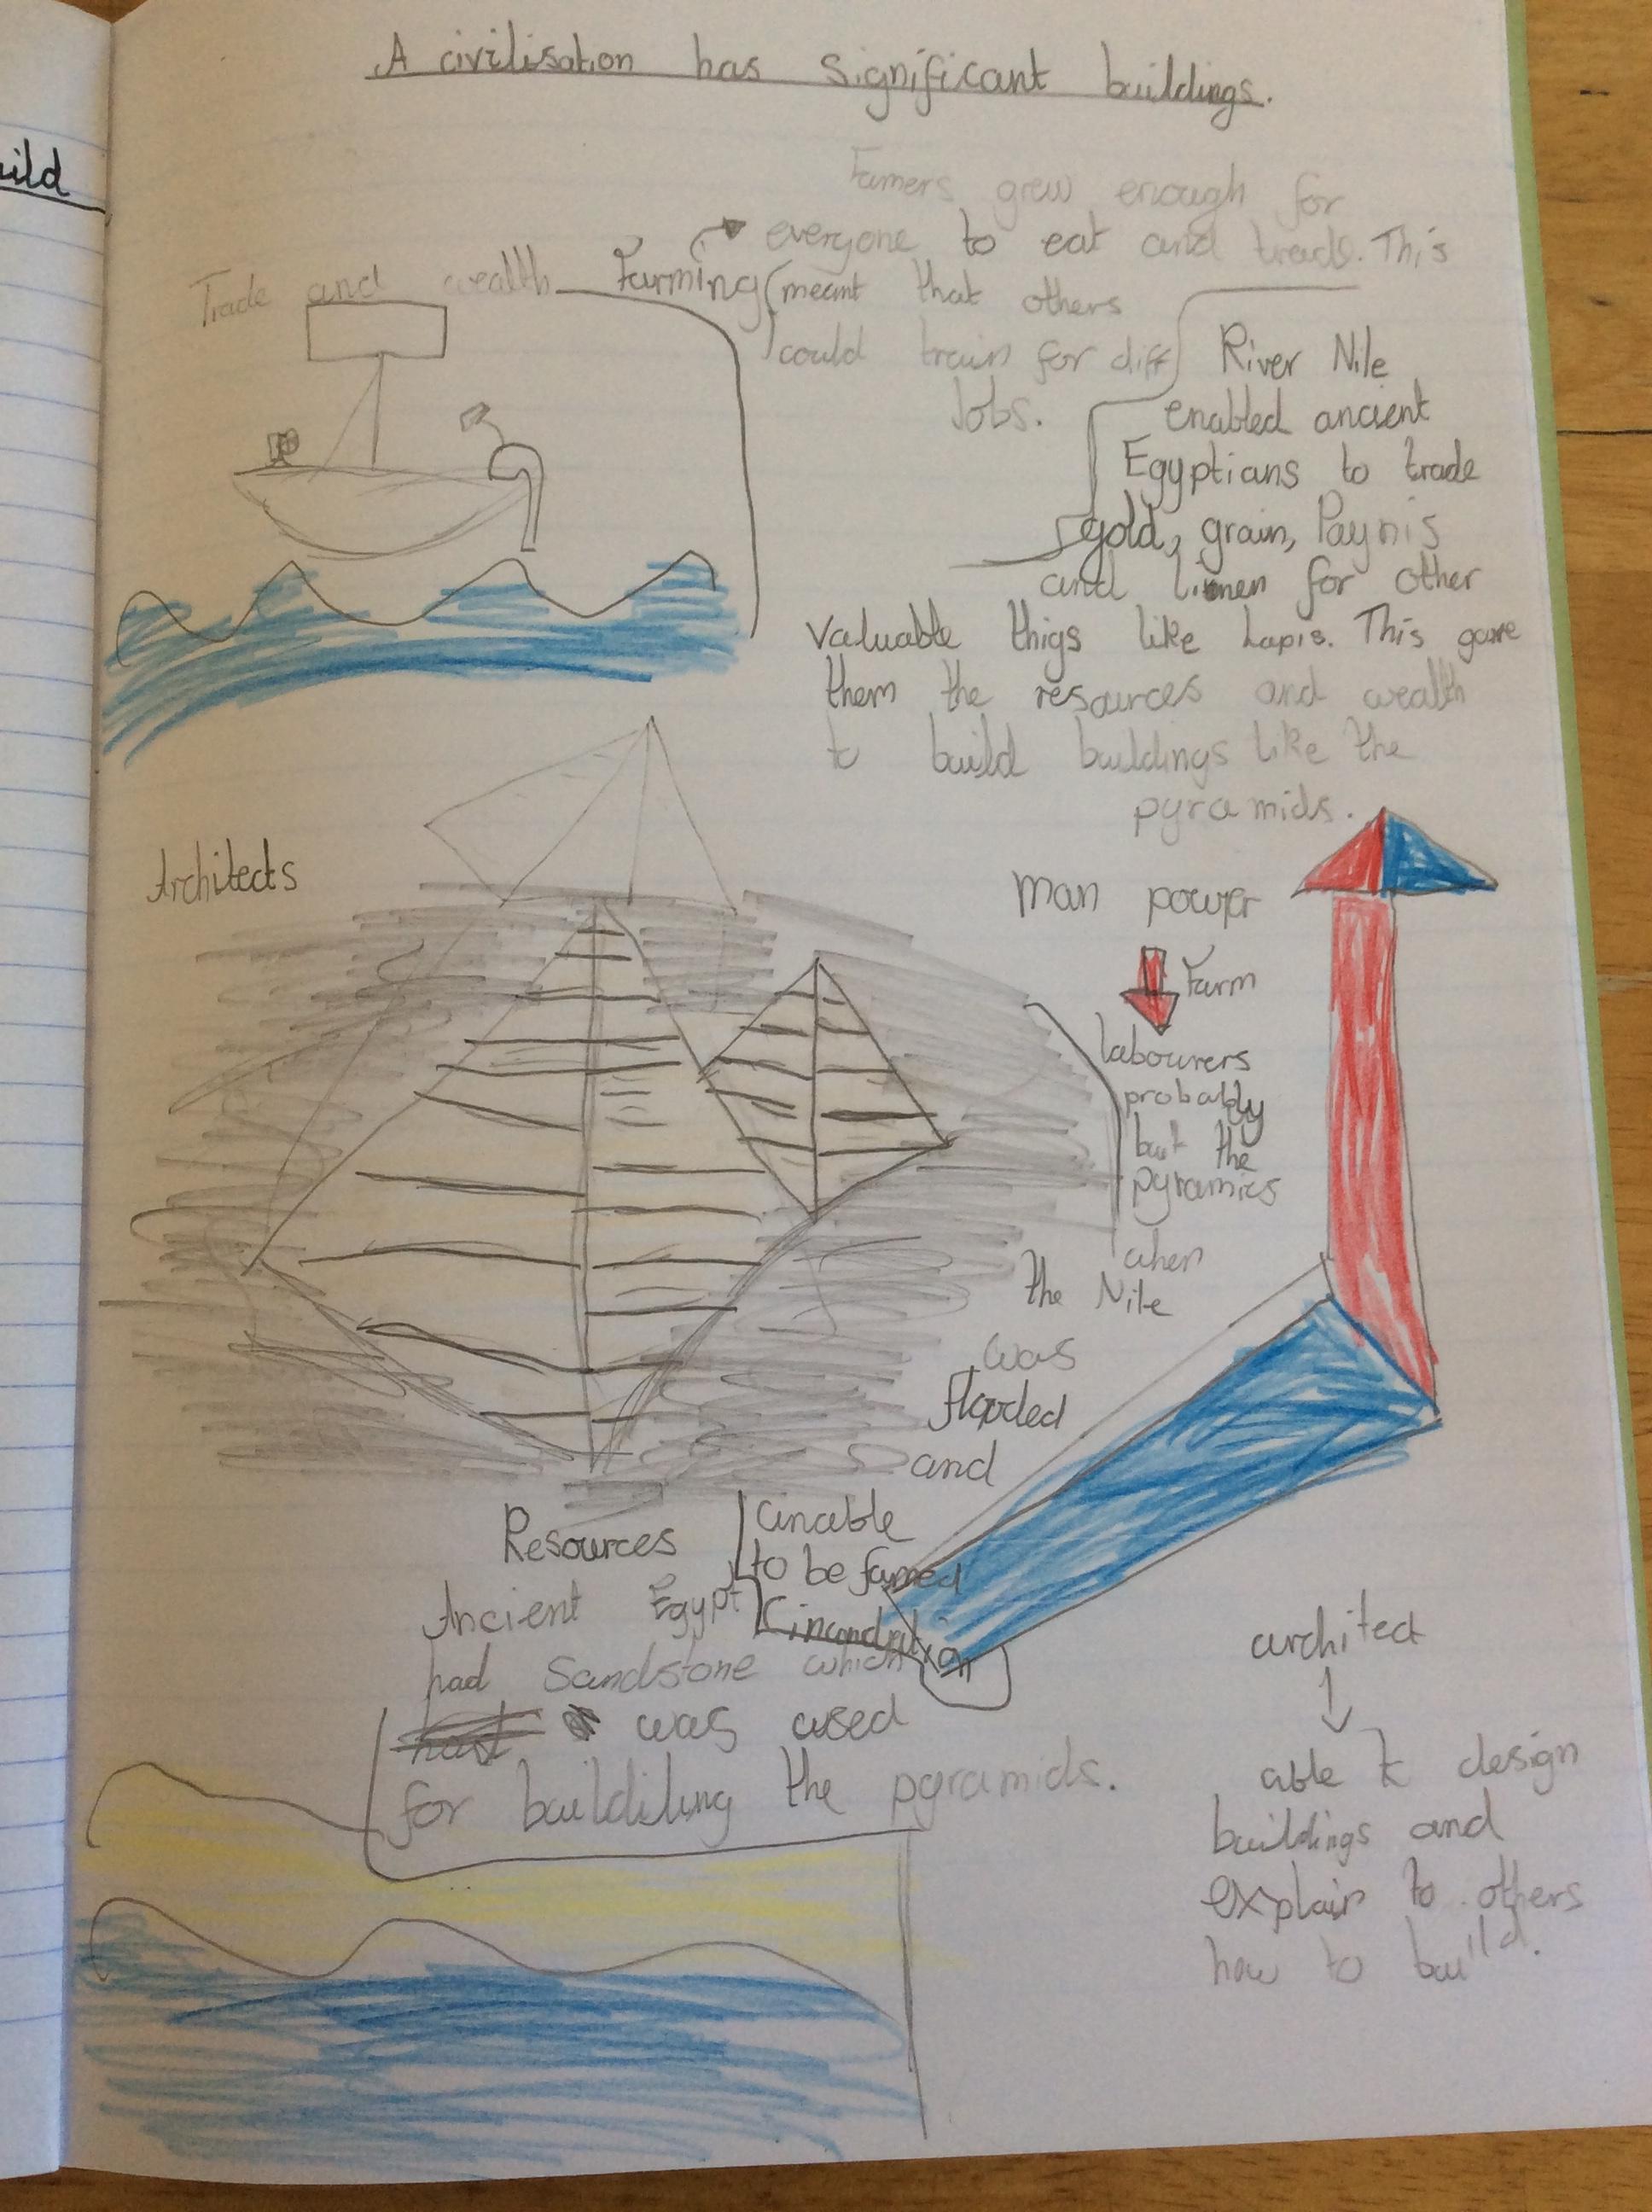 uild
A civilisation has significant buildings.
Trade and wealth
Farming
Famers grew enough for
everyone to eat and trade. This
meant that others
could train for diff
Jobs.
River Nile
enabled ancient
Egyptians to trade
gold, grain, Paynis
and linen for other
valuable thigs like Lapis. This gave
them the resources and wealth
to build buildings like the
pyramids.
Architects
Man power
Farm
labourers
probably
buit the
pyramies
when
the Nile
was
flooded
and
unable
to be famed
Resources
Ancient Egypt
had Sandstone which
was used
for buildiling the pyramids.
architect
able to design
buildings and
explain to others
how to build.